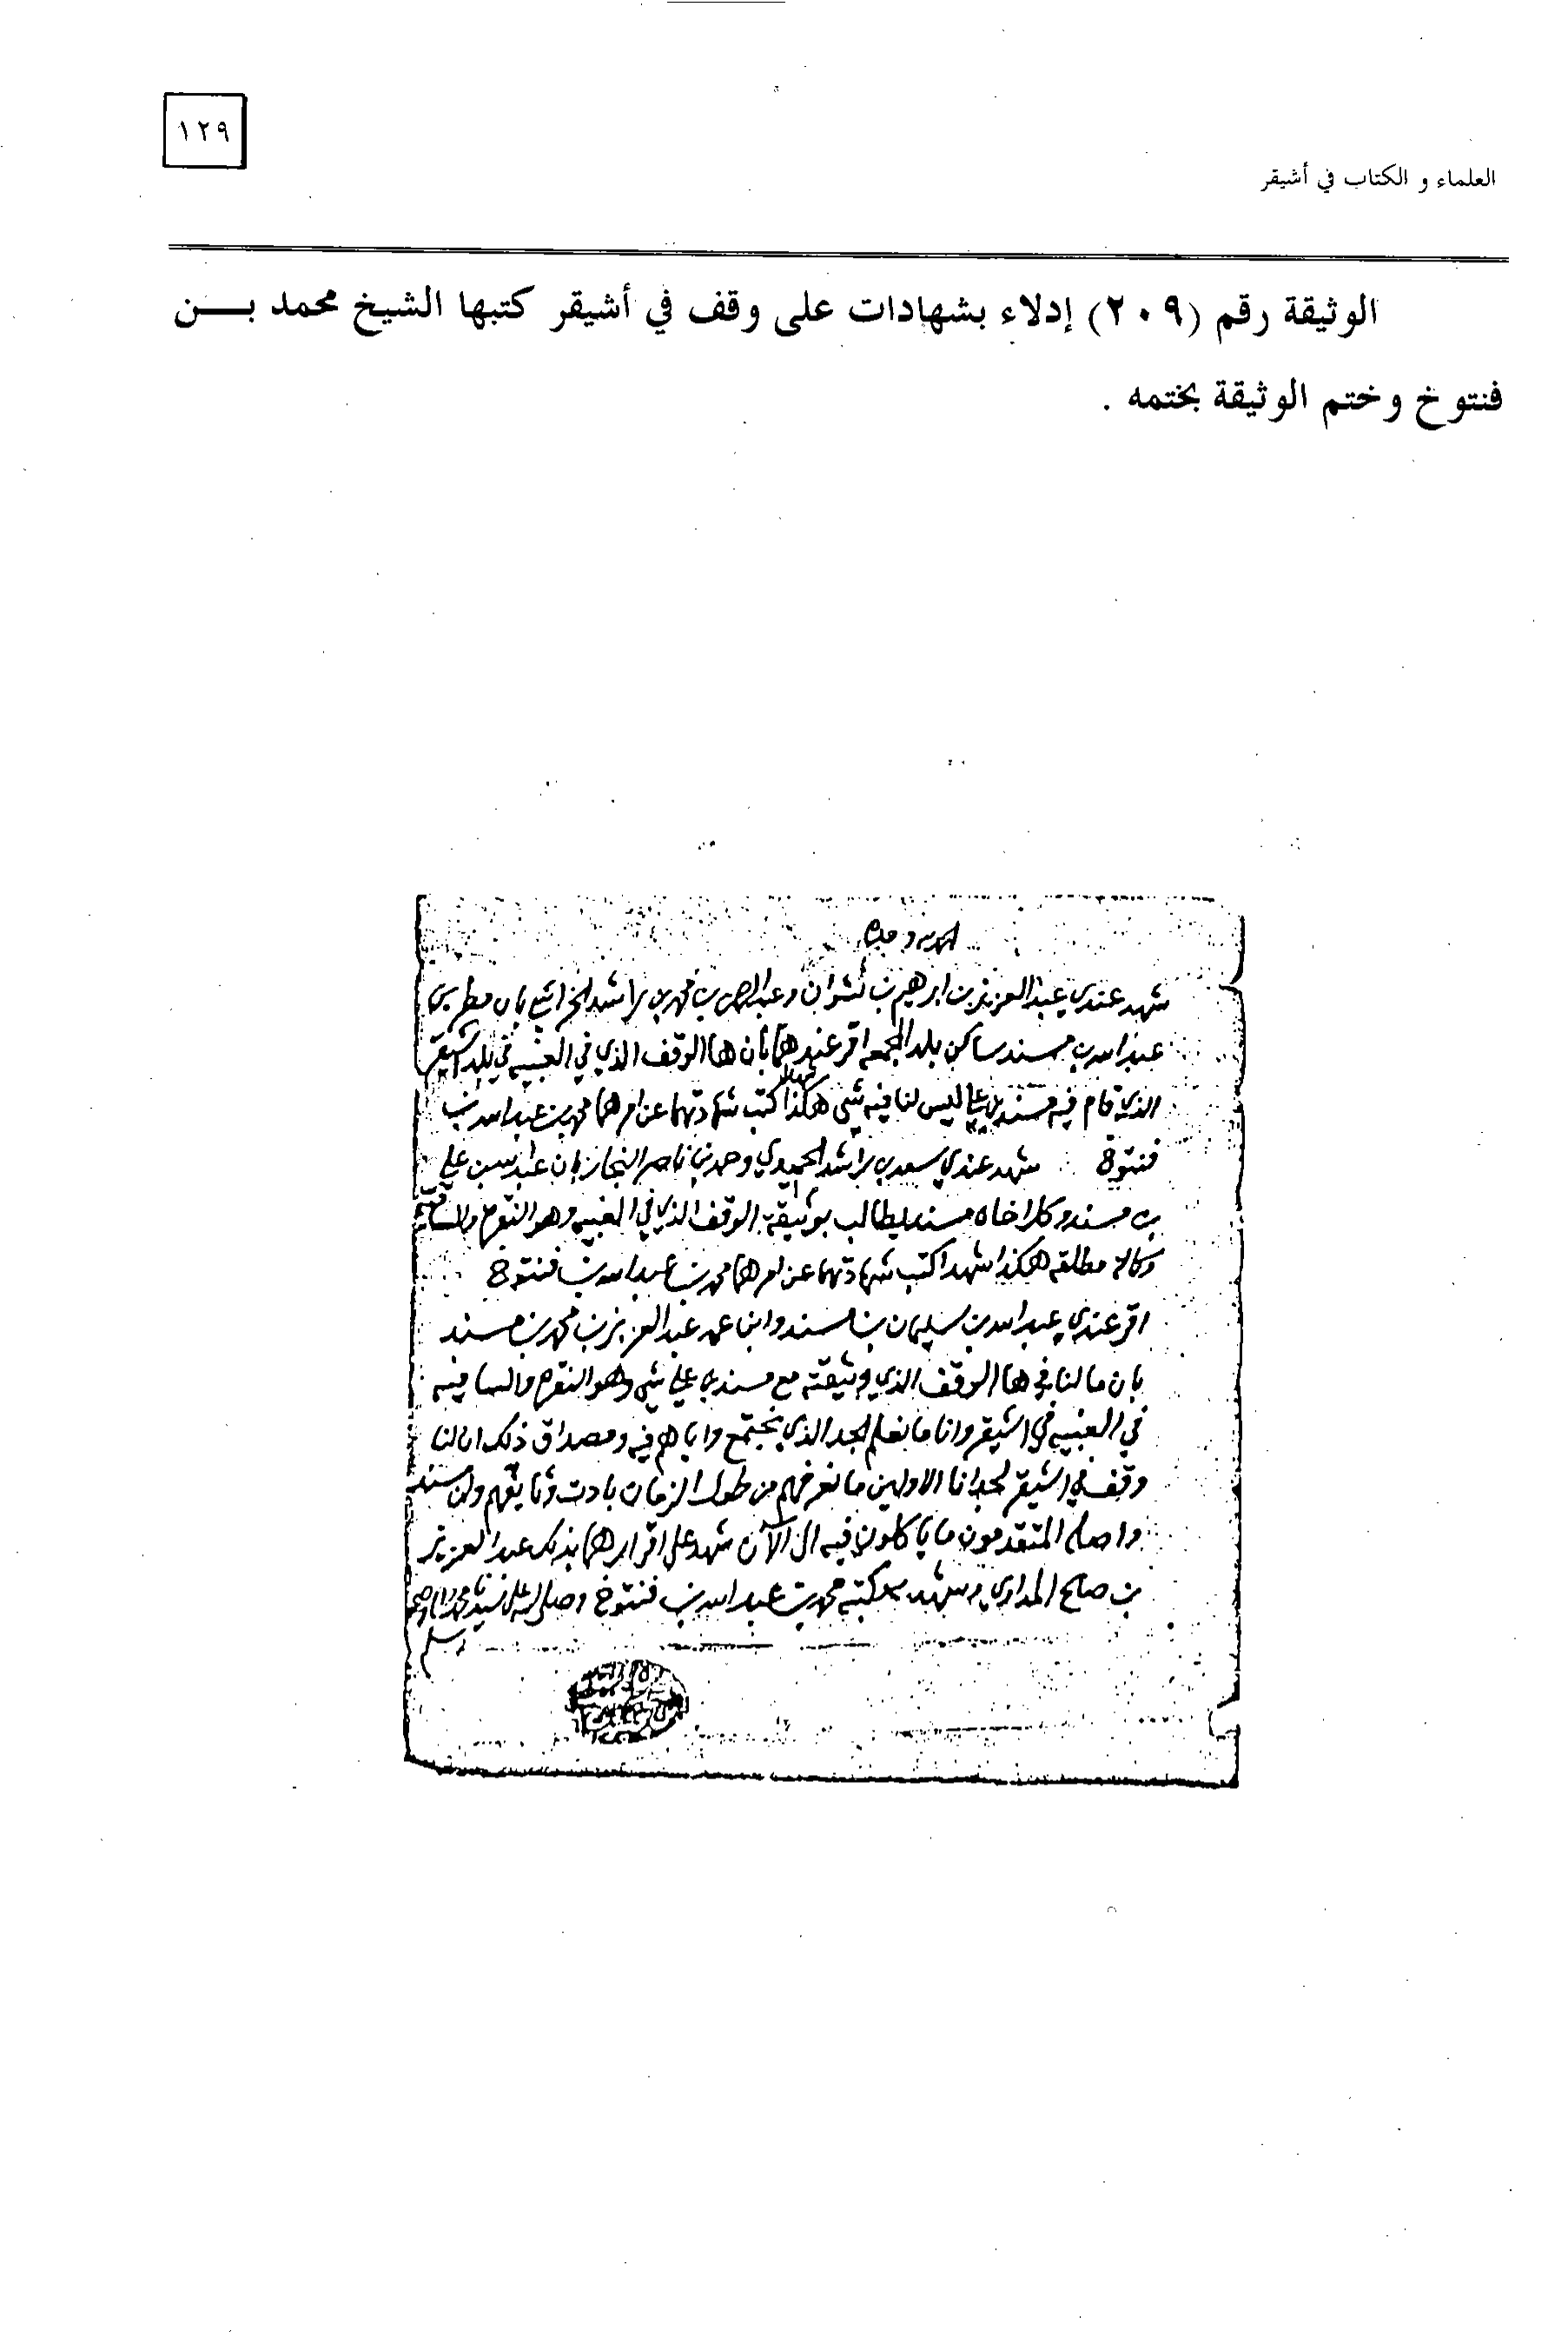 ١٢٩
العلماء و الكتاب في أشيقر
الوثيقة رقم (٢٠٩) إدلاء بشهادات على وقف في أشيقر كتبها الشيخ محمد بــن
فنتوخ وختم الوثيقة بختمه .
الحمد لله وحده
شهد عندي عبد العزيز بن ابرهيم بن نشوان وعبد الرحمن بن محمد بن راشد الخراشي بان
عبد الله بن مسند ساكن بلد المجمعه اقر عندهما بأن هاالوقف الذي في الغبيه في بلد اشيقر
الذي قام فيه مسند بن علي ليس لنا فيه شي هكذا شهدا كتب شهادتهما عن امرهما محمد بن عبد الله بن
فنتوخ شهد عندي سعد بن راشد الحميدي وحمد بن ناصر النجار بان عبد الله بن علي
بن مسند وكل اخاه مسند يطالب بوثيقة الوقف الذي في الغبيه وهو
وكالة مطلقه هكذا شهدا كتب شهادتهما عن امرهما محمد بن عبد الله بن فنتوخ
اقر عندي عبد الله بن سليمان بن مسند وابن عمه عبد العزيز بن محمد بن مسند
بان ما لنا في هاالوقف الذي وثيقته مع مسند بن علي شي وهو
في الغبيه في اشيقر وانا ما نعلم الجد الذي نجتمع واياهم فيه ومصداق ذلك ان لنا
وقف في اشيقر لجدانا الاولين ما نعرفهم من طول الزمان بادت وثايقهم
المتقدمون ما ياكلون فيه الى الآن شهد على اقرارهما بذلك عبد العزيز
بن صالح وشهد به كتبه محمد بن عبد الله بن فنتوخ وصلى الله على نبينا محمد
وسلم